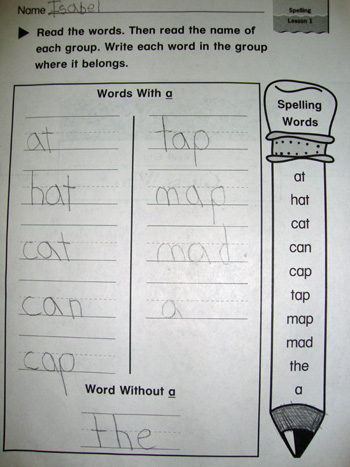 Name Isabel
Spelling
Lesson 1
Read the words. Then read the name of
each group. Write each word in the group
where it belongs.
Words With a
at
hat
cat
can
cap
tap
map
mad.
a
Word Without a
the
Spelling
Words
at
hat
cat
can
cap
tap
map
mad
the
a